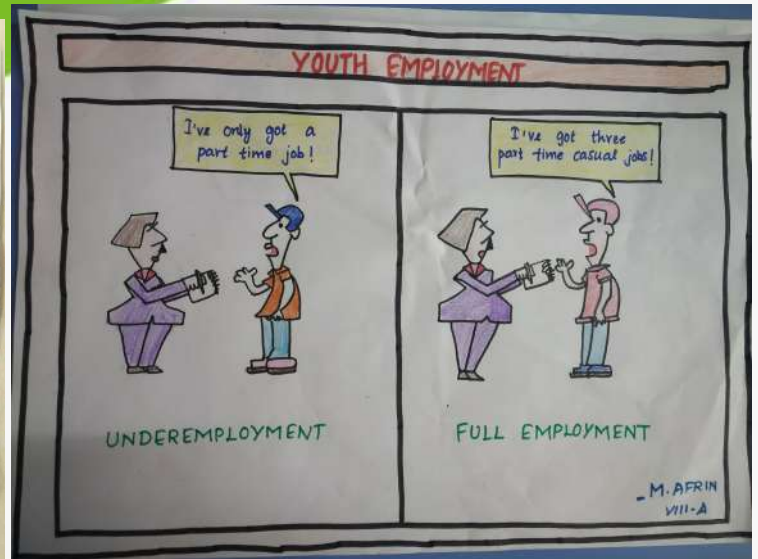 YOUTH EMPLOYMENT
I've only got a
part time job!
UNDEREMPLOYMENT
I've got three
part time casual jobs!
FULL EMPLOYMENT
- M. AFRIN
VIII-A